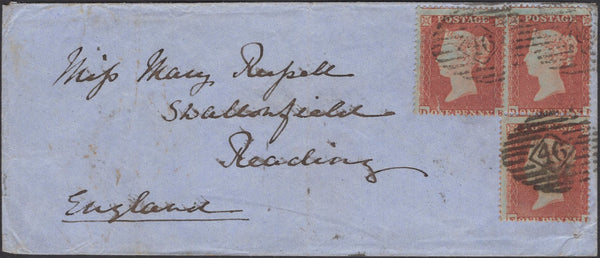 Miss Mary Russell
Swallowfield
Reading
England
POSTAGE
POSTAGE
ONE PENNY
ONE PENNY
ONE PENNY